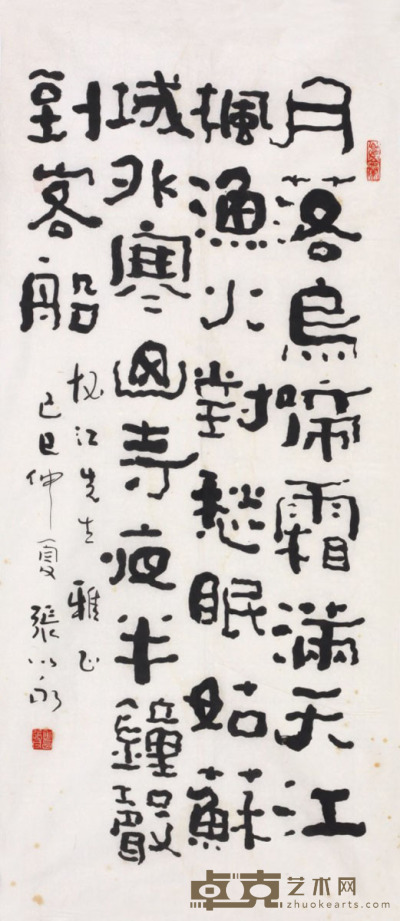 月落烏啼霜滿天江
楓漁火對愁眠姑蘇
城外寒山寺夜半鐘聲
到客船
江先生雅正
己巳仲夏張以永
卓克艺术网
zhuokearts.com